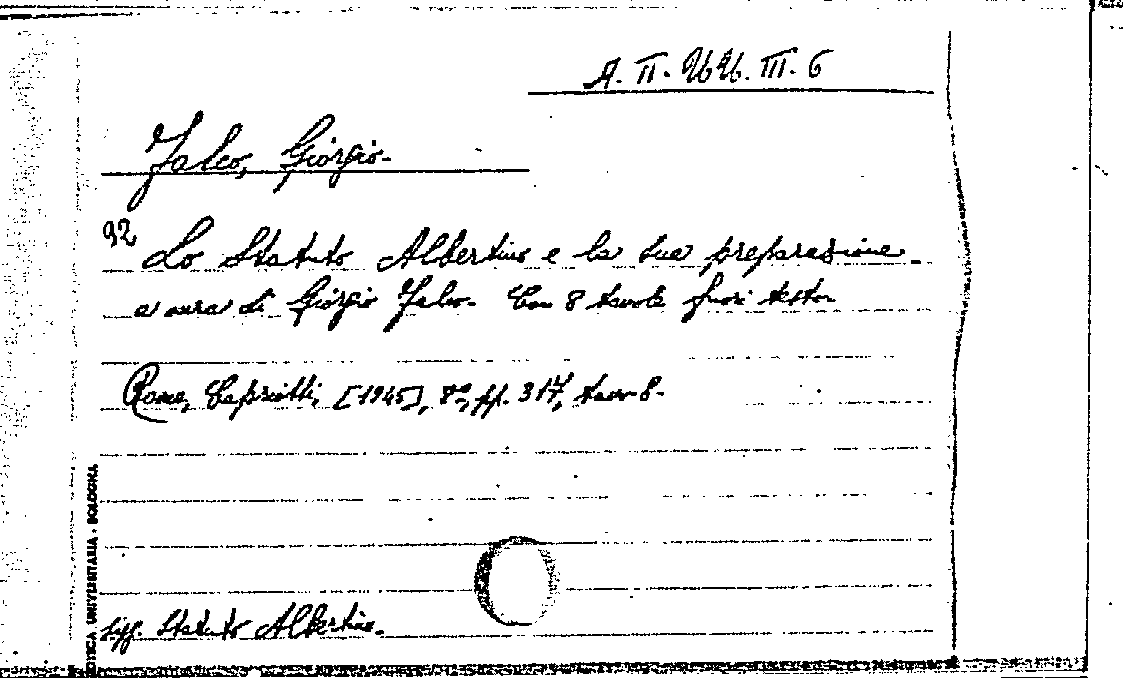 A. II. 46 46. III. 6
Falco, Giorgio.
92
Lo Statuto Albertino e la sua preparazione.
a cura di Giorgio Falco. Con 8 tavole fuori testo.
Roma, Capriotti, [1945], 8°, pp. 317, tav. 8.
Statuto Albertino.
OTECA UNIVERSITARIA - BOLOGNA